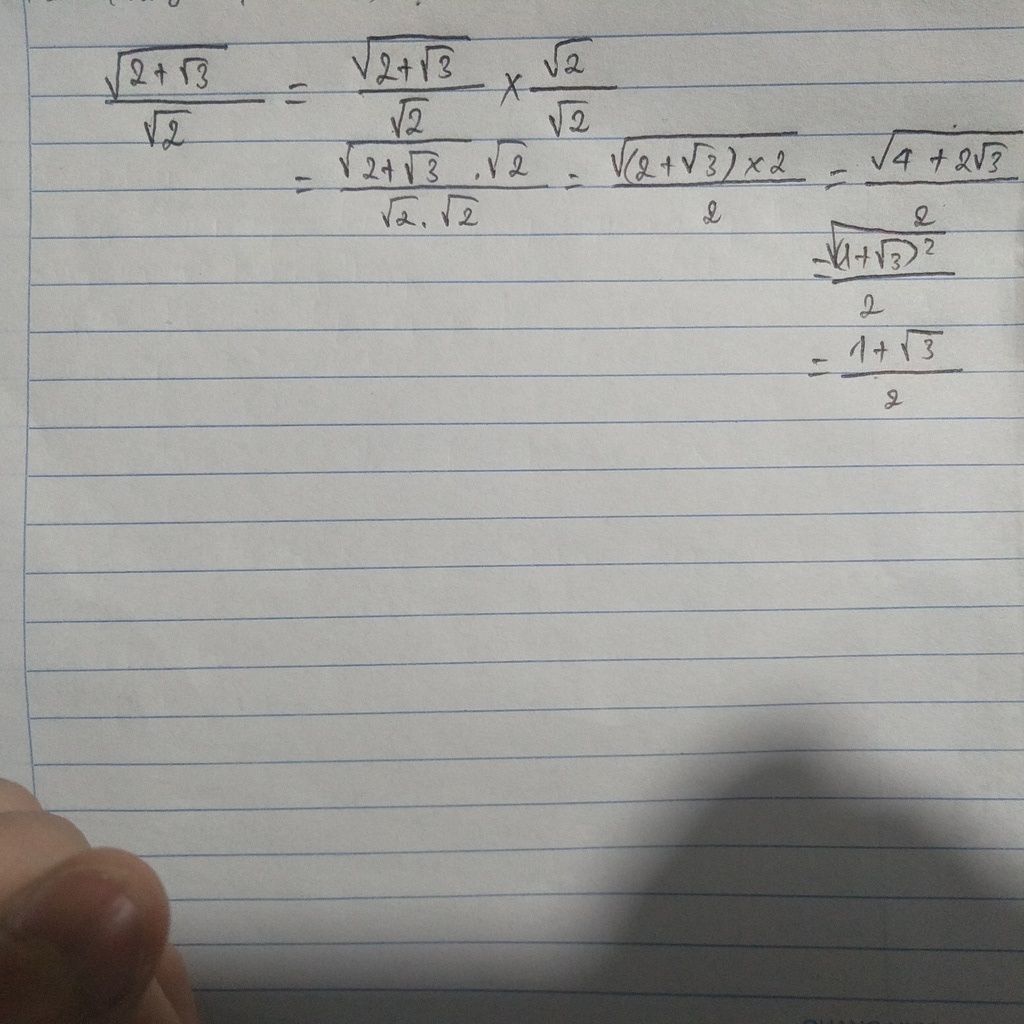 √(2+√3)/√2 = √(2+√3)/√2 × √2/√2
= √(2+√3) . √2/√2 . √2 = √((2+√3)×2)/2 = √(4+2√3)/2
= √((1+√3)²)/2
= 1+√3/2